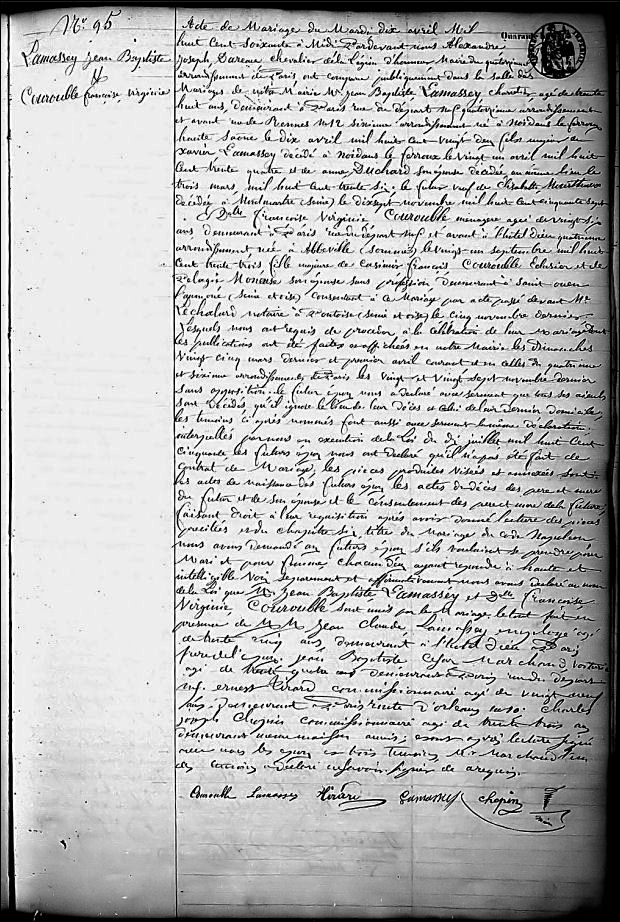 N° 95
Lamassey Jean Baptiste
&
Courouble françoise, virginie
Acte de Mariage du Mardi dix avril Mil
huit Cent Soixante à Midi Pardevant nous Alexandre
Joseph Dareau chevalier de la Légion d'honneur Maire du quatorzième
arrondissement de Paris ont comparu publiquement dans la salle des
Mariages de notre Mairie Mr. Jean Baptiste Lamassey âgé de trente
huit ans, demeurant à Paris rue du départ n° quatorzième arrondissement
et avant rue de Rennes n° 12 sixième arrondissement né à Noidans le ferroux
haute Saône le dix avril mil huit cent vingt deux fils majeur de
Xavier Lamassey décédé à Noidans le ferroux le vingt un avril mil huit
Cent trente quatre et de anne Duchard son épouse décédée au même lieu le
trois mars mil huit Cent trente six, le futur veuf de Elisabeth
décédée à Montmartre (Seine) le dix sept novembre mil huit Cent cinquante sept
& Dlle françoise Virginie Courouble ménagère âgée de vingt six
ans demeurant à Paris rue du départ n° et avant à l'hôtel Dieu quatrième
arrondissement née à Abbeville (Somme) le vingt un septembre mil huit
Cent trente trois fille majeure de Casimir françois Courouble Eclusier et de
Pelagie son épouse sans profession, demeurant à Saint ouen
l'aumone (Seine et oise) Consentant à ce Mariage par acte passé devant Me
Lechalard notaire à Pontoise (Seine et oise) le cinq novembre dernier
Lesquels nous ont requis de procéder à la célébration de leur mariage dont
les publications ont été faites et affichées en notre Mairie les Dimanches
vingt cinq mars dernier et premier avril courant et en celles du quatrième
et sixième arrondissements de Paris les vingt et vingt sept novembre dernier
sans opposition. le futur époux nous a déclaré avec serment que tous ses aïeuls
sont décédés qu'il ignore le lieu de leur décès et celui de leur dernier domicile
les témoins ci après nommés font aussi avec serment la même déclaration.
interpellés par nous en exécution de la Loi du dix juillet mil huit Cent
cinquante les futurs époux nous ont déclaré qu'il n'a pas été fait de
Contrat de Mariage, les pièces produites visées et annexées sont:
les actes de naissance des futurs époux les actes de décès des père et mère
du futur et de son épouse et le Consentement des père et mère de la future,
faisant droit à leur requisition après avoir donné lecture des pièces
précitées et du chapitre six, titre du Mariage du Code Napoléon,
nous avons demandé aux futurs époux s'ils voulaient se prendre pour
Mari et pour femme, chacun d'eux ayant répondu à haute et
intelligible Voix séparément et affirmativement nous avons déclaré au nom
de la Loi que Mr. Jean Baptiste Lamassey et Dlle françoise
Virginie Courouble sont unis par le Mariage. le tout fait en
présence de M.M. Jean Claude Lamassey employé âgé
de trente cinq ans demeurant à l'hôtel Dieu à Paris
frère de l'époux, Jean Baptiste César Marchand,
âgé de quatre ans demeurant à Paris rue du départ
n° ernest commissionnaire âgé de vingt neuf
ans demeurant à Paris route d'orléans Charles
joseph Chopin commissionnaire âgé de trente trois ans
demeurant même maison amis; et ont après lecture signé
avec nous les époux et trois témoins, Mr. Marchand l'un
des témoins a déclaré ne savoir signer de ce requis.
Courouble Lamassey Lamassey Chopin